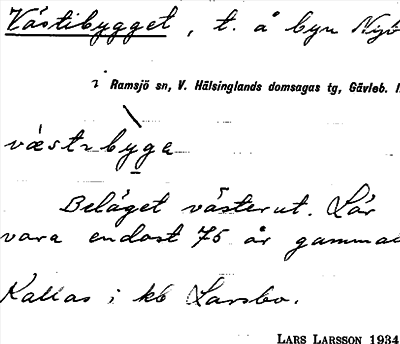 Västibygget, t. å byn Nyb
i Ramsjö sn, V. Hälsinglands domsagas tg, Gävleb.
Beläget västerut. Lär
vara endast 75 år gammal
Kallas i kb Larsbo.
LARS LARSSON 1934